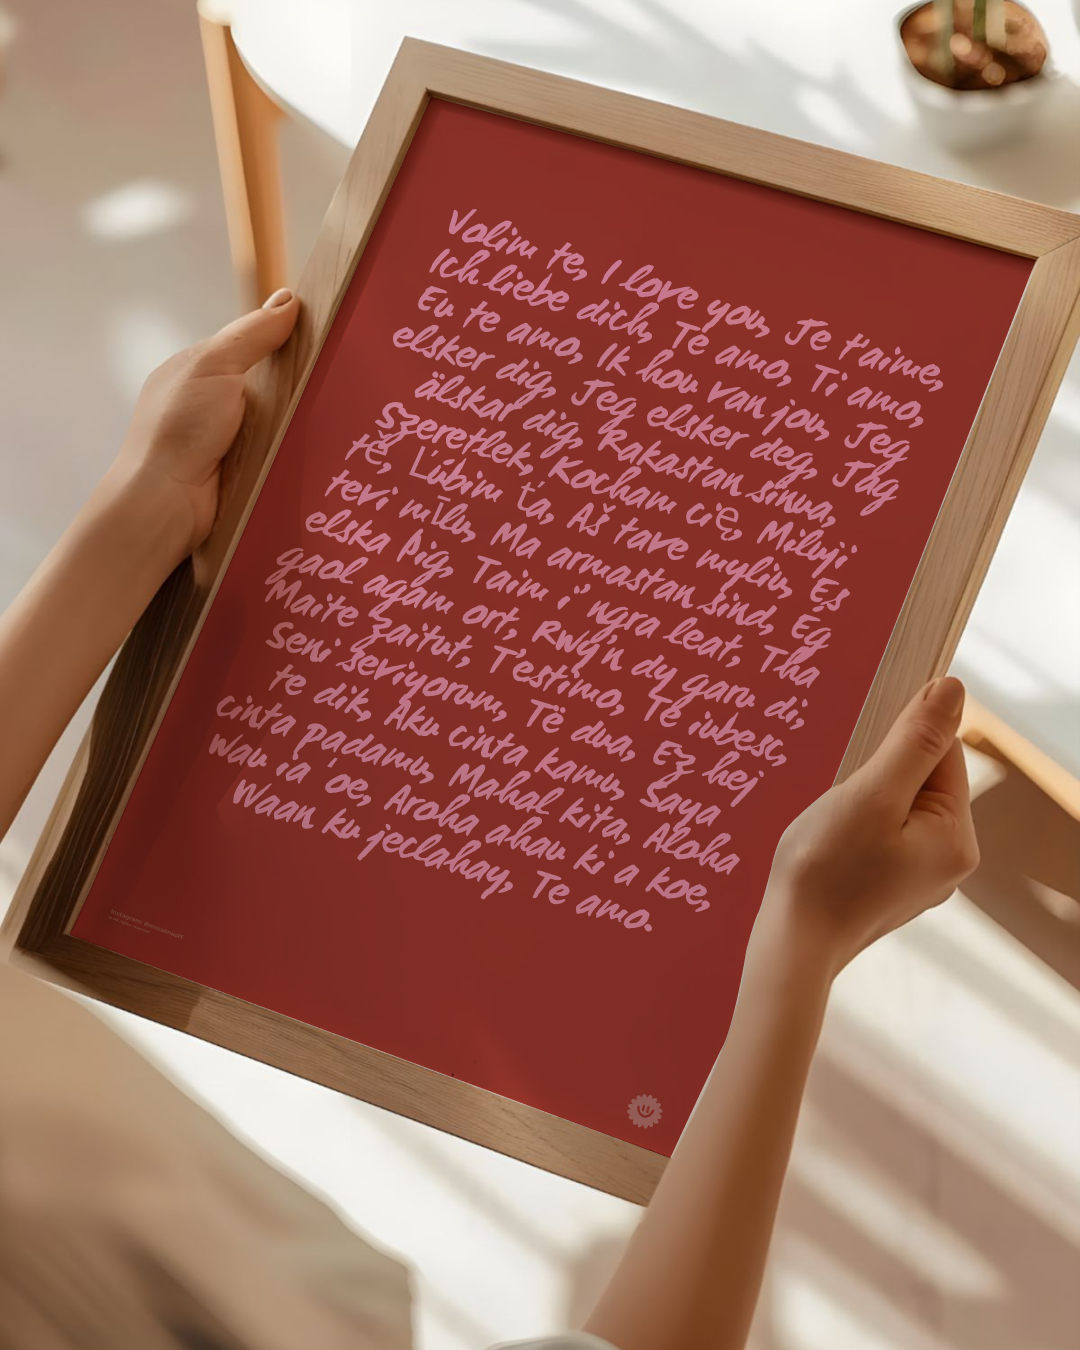 Volim te, I love you, Je t'aime,
Ich liebe dich, Te amo, Ti amo,
Eu te amo, Ik hou van jou, Jeg
elsker dig, Jeg elsker deg, Jag
älskar dig, Rakastan sinua,
Szeretlek, Kocham cię, Miluji
tě, Ľúbim ťa, Aš tave myliu, Es
tevi mīlu, Ma armastan sind, Ég
elska þig, Taim i' ngra leat, Tha
gaol agam ort, Rwy'n dy garu di,
Maite zaitut, T'estimo, Te iubesc,
Seni seviyorum, Të dua, Ez hej
te dik, Aku cinta kamu, Saya
cinta padamu, Mahal kita, Aloha
wau iā 'oe, Aroha ahau ki a koe,
Waan ku jeclahay, Te amo.